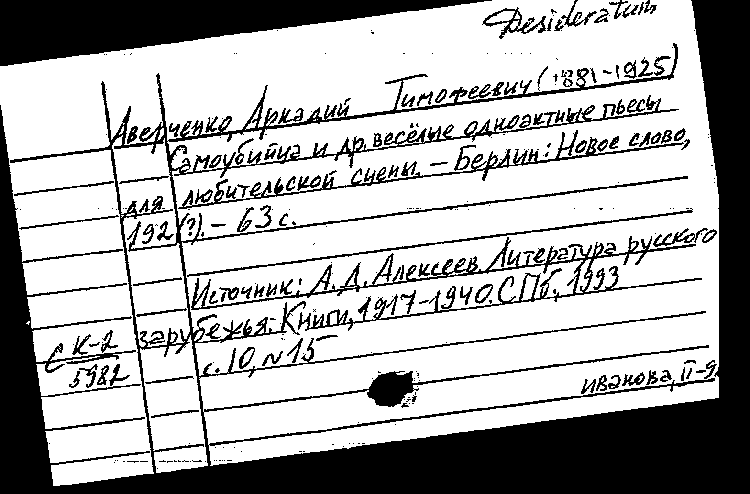 Desideratum
Аверченко, Аркадий Тимофеевич (1881-1925)
Самоубийца и др. весёлые одноактные пьесы
для любительской сцены. – Берлин: Новое слово,
192(?). – 63 с.
Источник: А.Д. Алексеев. Литература русского
зарубежья. Книги, 1917-1940. СПб, 1993
с. 10, №15
С К-2
5982
Иванова, II-9